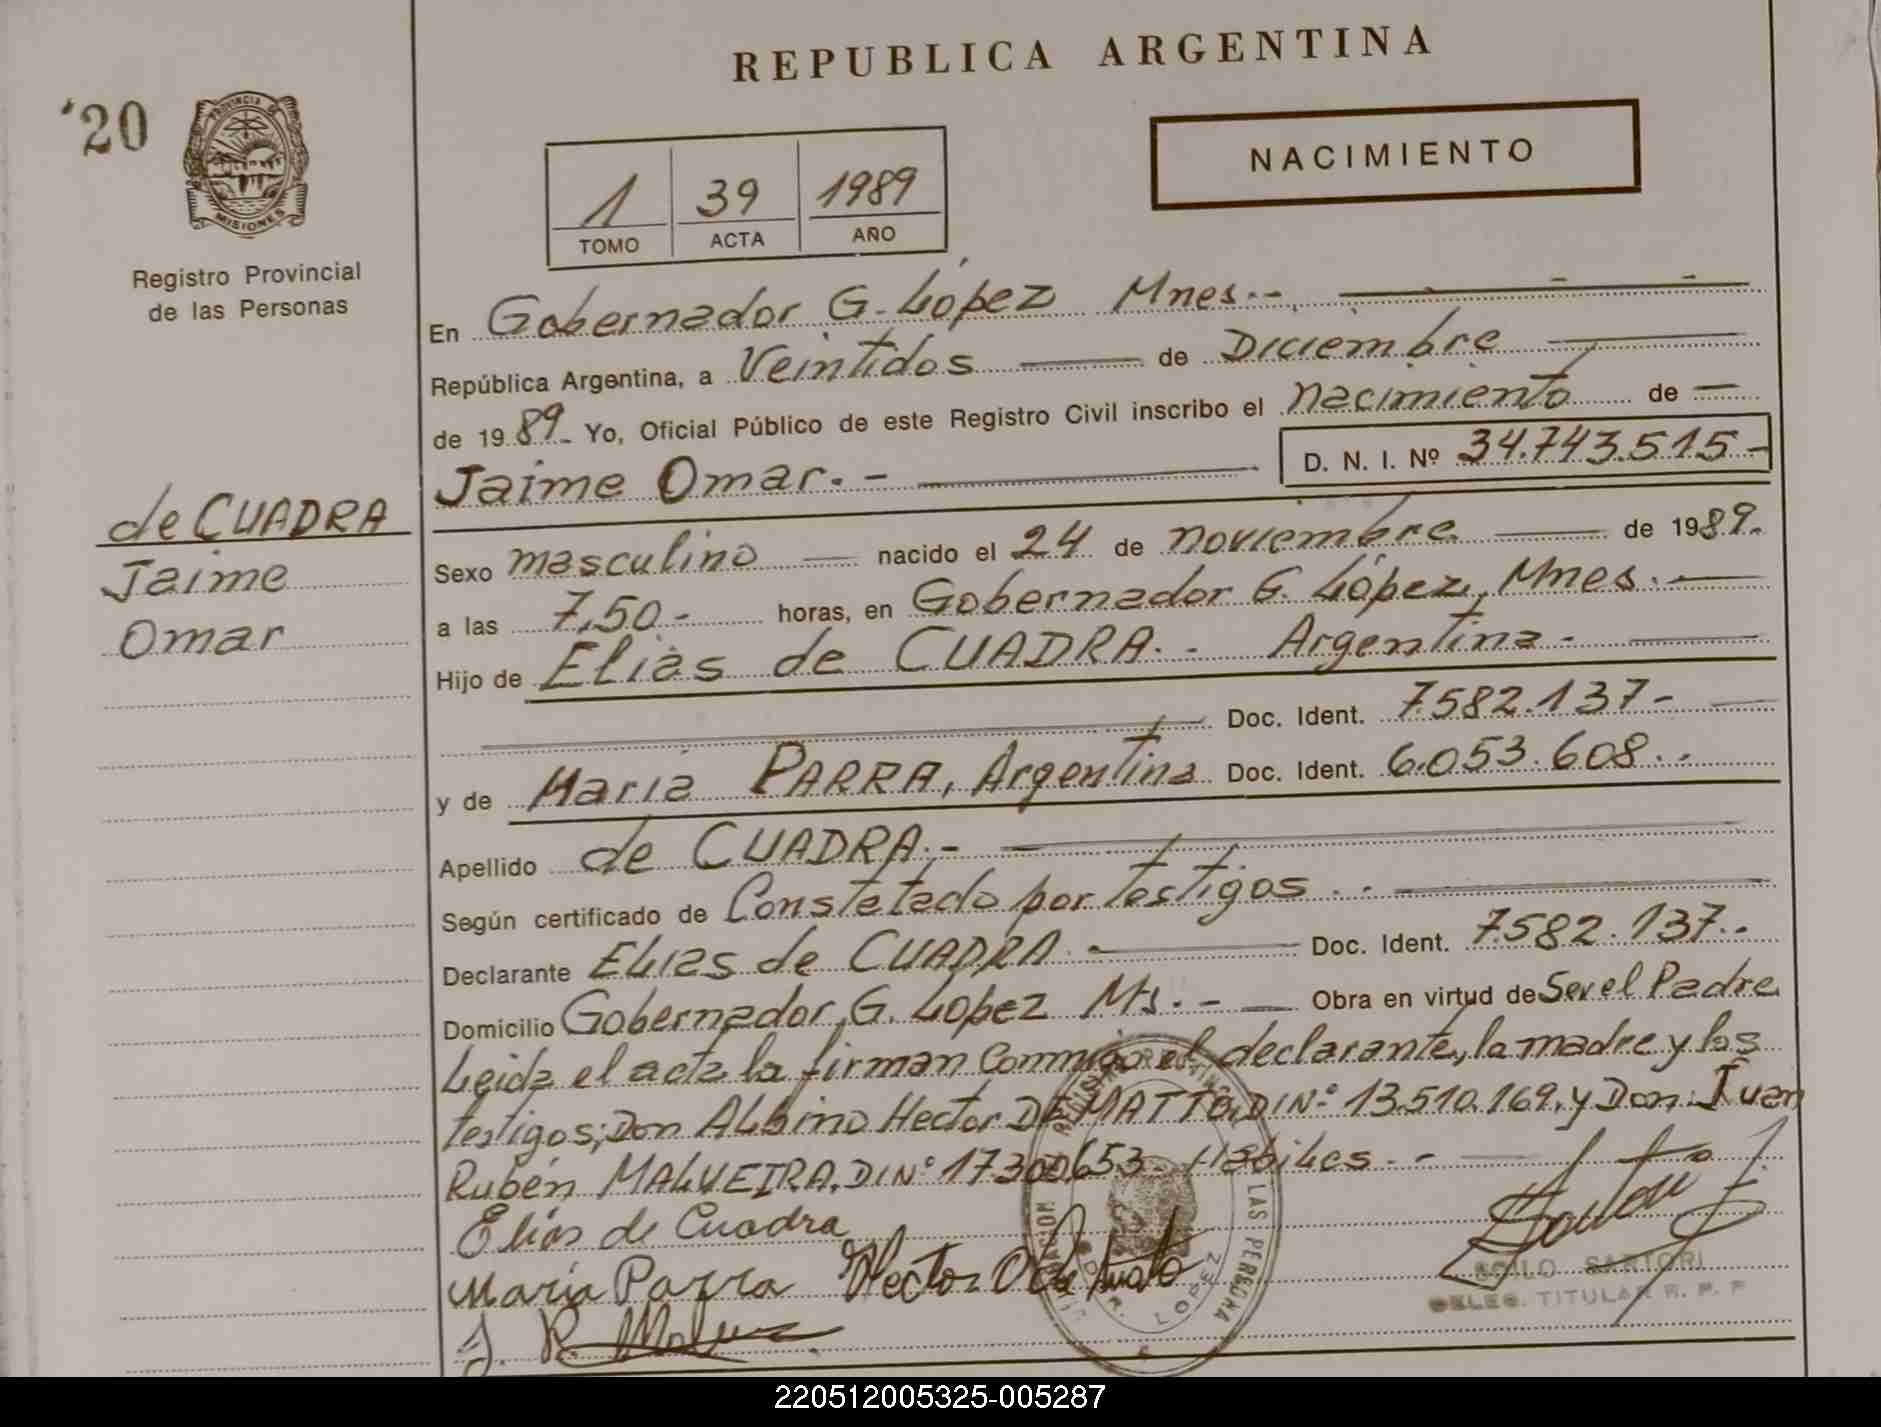 REPUBLICA ARGENTINA
20
PROVINCIA DE
MISIONES
Registro Provincial
de las Personas
NACIMIENTO
1 39 1989
TOMO ACTA AÑO
En Gobernador G. López Mnes.-
República Argentina, a Veintidos de Diciembre
de 1989- Yo, Oficial Público de este Registro Civil inscribo el nacimiento de
Jaime Omar.- D. N. I. Nº 34.743.515-
de CUADRA
Jaime
Omar
Sexo masculino nacido el 24 de noviembre de 1989.
a las 7,50.- horas, en Gobernador G. López, Mnes.-
Hijo de Elias de CUADRA.- Argentina-
Doc. Ident. 7.582.137-
y de María PARRA, Argentina Doc. Ident. 6.053.608..
Apellido de CUADRA.-
Según certificado de Constatado por testigos..
Declarante Elias de CUADRA.- Doc. Ident. 7.582.137..
Domicilio Gobernador G. López Ms.- Obra en virtud de Ser el Padre
Leida el acta la firman Conmigo el declarante, la madre y los
testigos; Don ALbino Hector DE MATTO, DIN° 13.510.169. y Don: Juan
Rubén MALVEIRA. DIN° 17.300.653- Habiles.-
Elías de Cuadra
María Parra Hector
J. R.
LAS PERSONA
LOPEZ
SARTORI
DELEG. TITULAR R. P. P
220512005325-005287